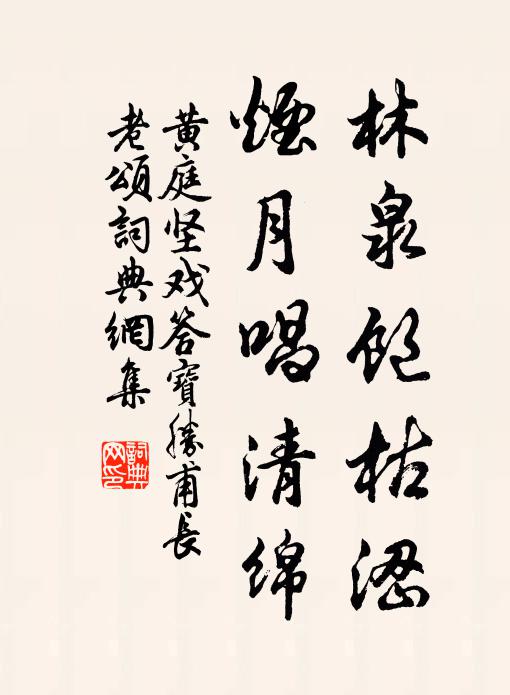 林泉飽枯涩
煙月唱清綿
黄庭坚戏答寶勝甫長
老頌詞典網集
詞典
网印